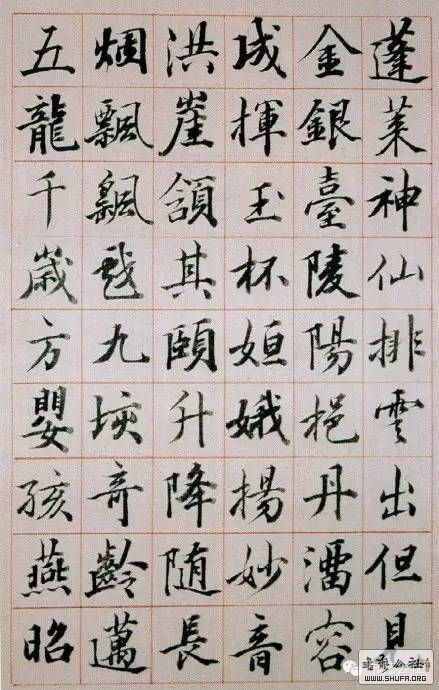 蓬萊神仙排雲出但見
金銀臺陵陽挹丹溜容
成揮玉杯姮娥揚妙音
洪崖頷其頤升降隨長
烟飄飄戲九垓奇齡邁
五龍千歲方嬰孩燕昭
書藝公社
WWW.SHUFA.ORG